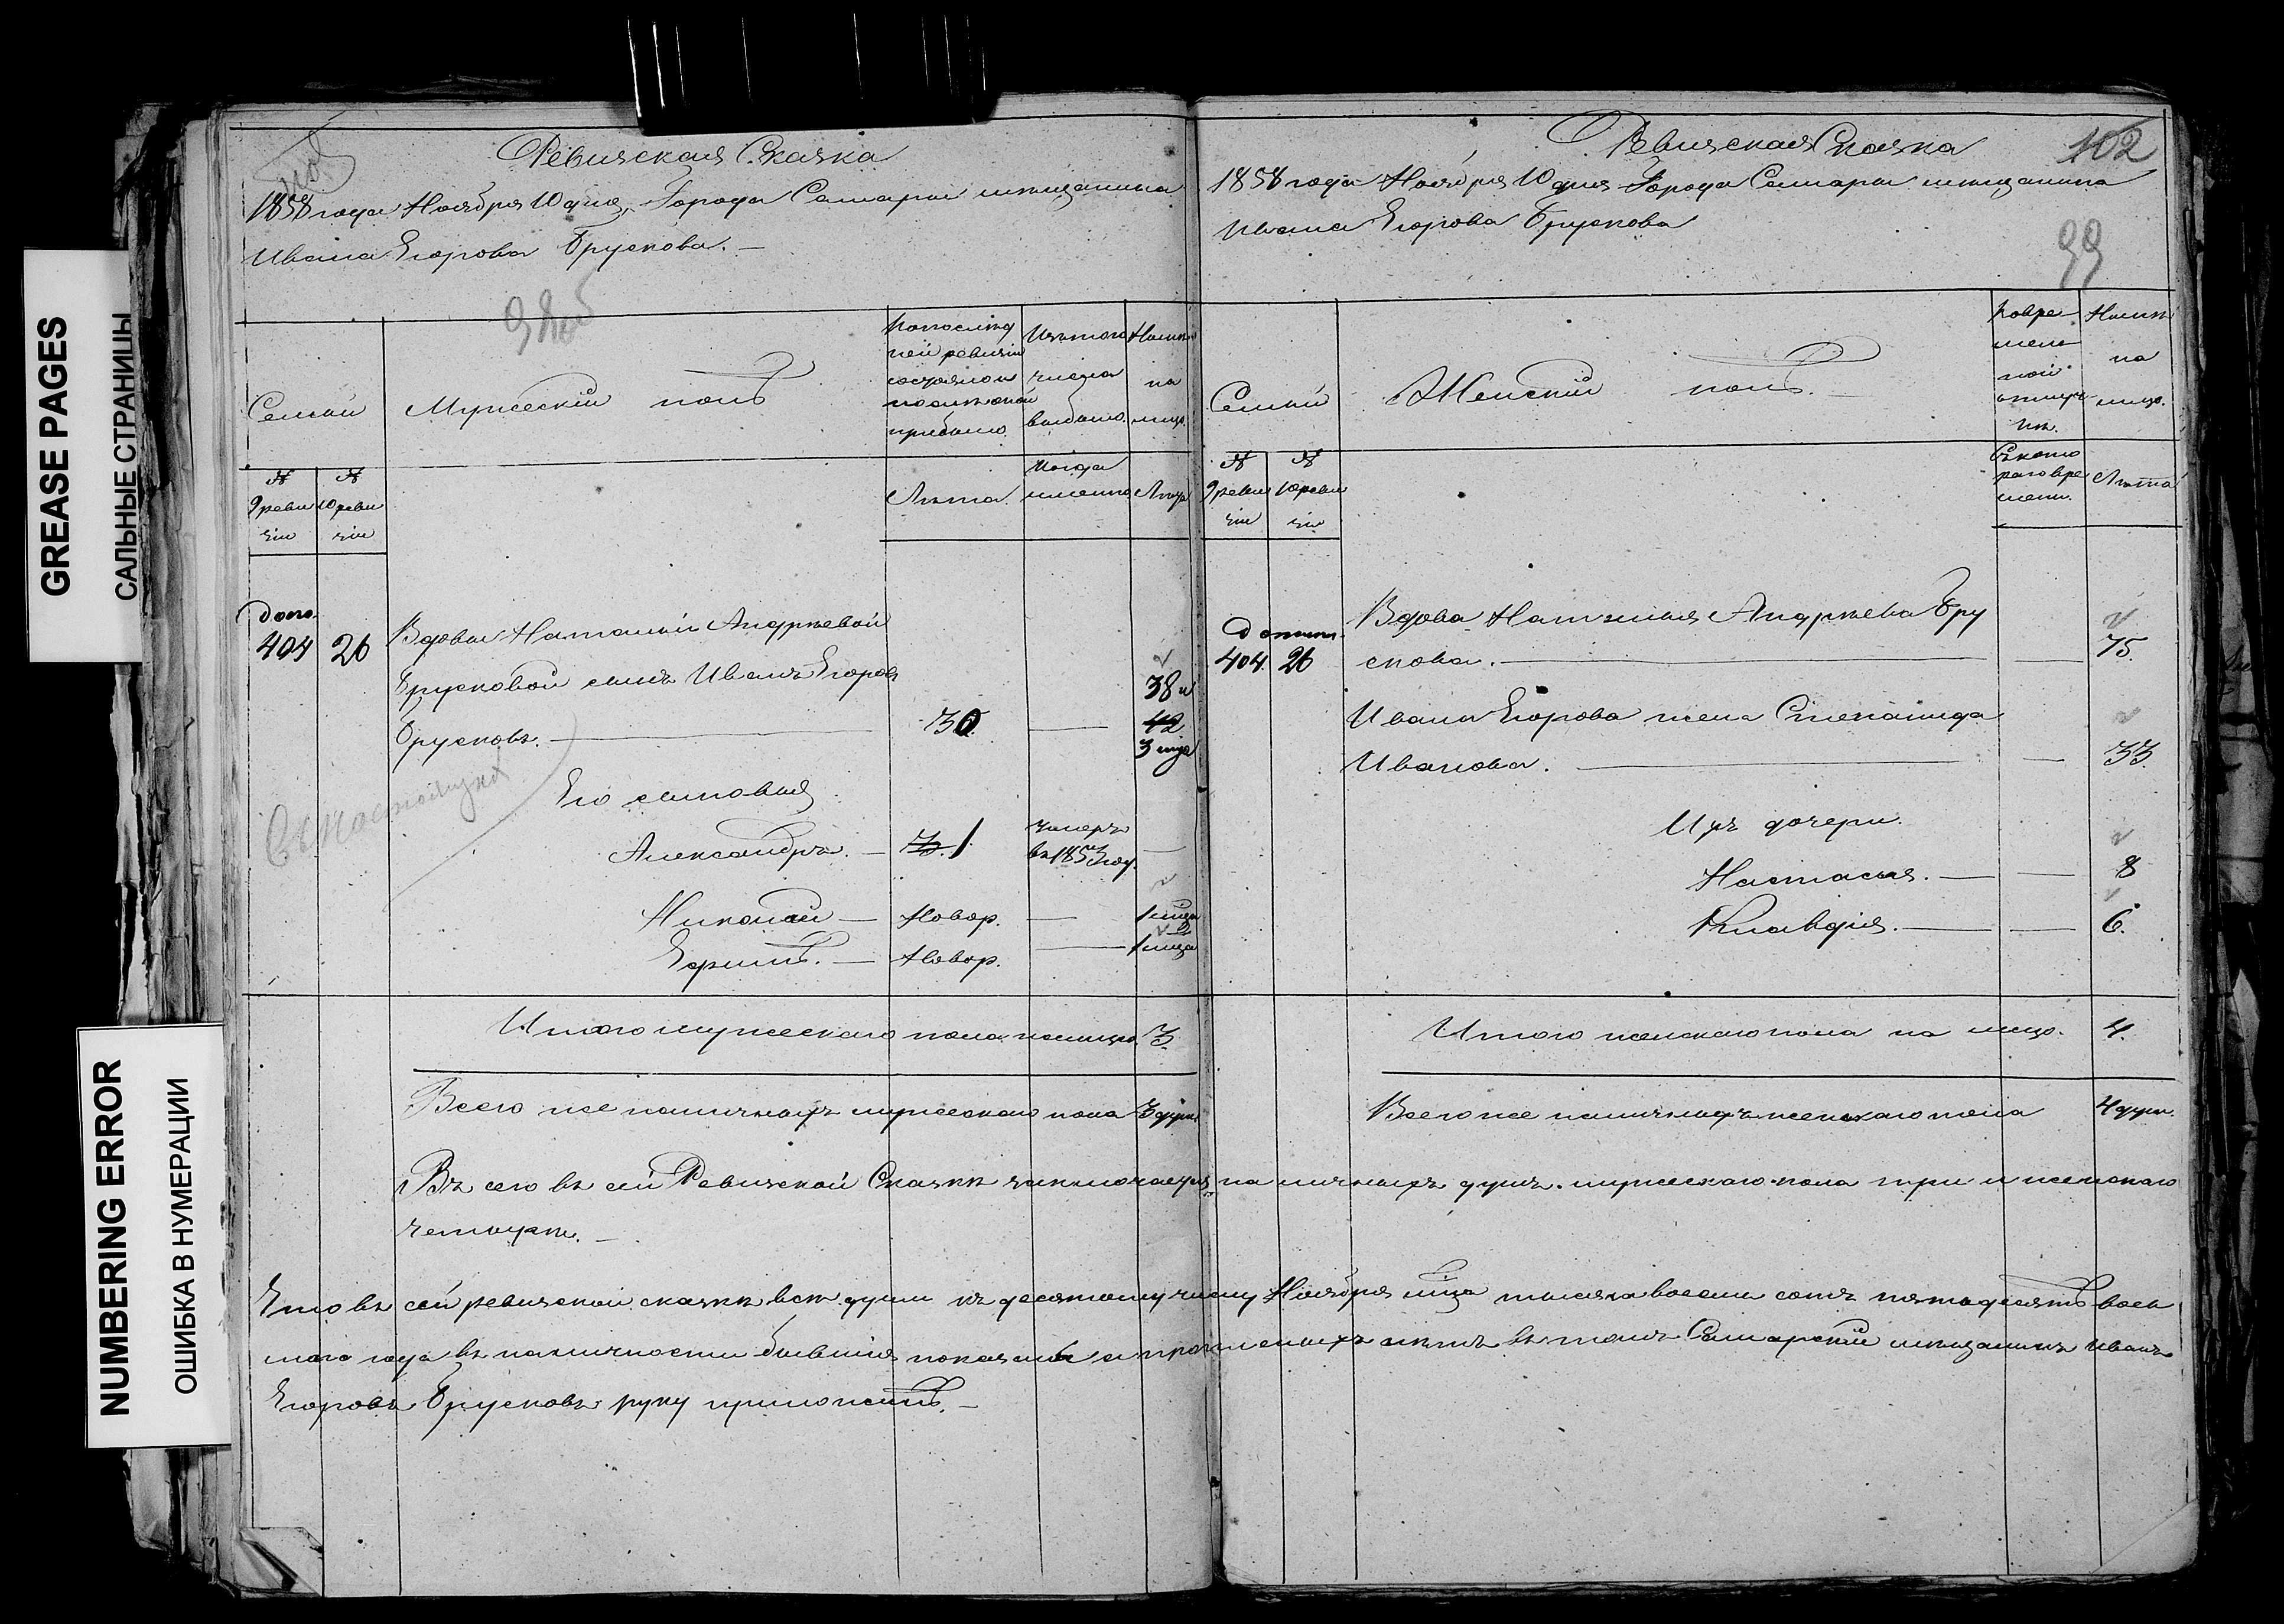 GREASE PAGES
САЛЬНЫЕ СТРАНИЦЫ
NUMBERING ERROR
ОШИБКА В НУМЕРАЦИИ
Ревизская Сказка
1858 года Ноября 10 дня, Города Самары мѣщанина
Ивана Егорова Брускова. —
98об
Семьи
Мужескій полъ
По послѣд
ней ревизіи
состояло и
послѣ оной
прибыло.
Изъ того
числа
выбыло.
Налицо
на
лицо.
№
9 реви
зіи
№
10 реви
зіи
Лѣта.
Когда
именно
Лѣта
допо.
404 26 Вдовы Наталіи Андрѣевой
Брусковой сынъ Иванъ Егоровъ
Брусковъ. — 30 — 38 и
42
3 мца
Его сыновья
Александръ. — 3. 1 умеръ
въ 1853 году. —
Николай — Новор. —
Ефимъ. — Новор. —
Итого мужескаго пола налицо. 3.
Всего же наличныхъ мужескаго пола 3 души
Ревизская Сказка
102
1858 года Ноября 10 дня Города Самары мѣщанина
Ивана Егорова Брускова
99
Семьи
Женскій полъ.
Во вре
мен
ной
отлуч
кѣ.
Налич
на
лицо.
№
9 реви
зіи
№
10 реви
зіи
Съ кото
раго вре
мени.
Лѣта
допол.
404. 26 Вдова Наталья Андрѣева Бру
скова. — 75.
Ивана Егорова жена Степанида
Иванова. — 33.
Ихъ дочери.
Настасья. — 8
Клавдія. — 6.
Итого женскаго пола на лицо. 4.
Всего же наличныхъ женскаго пола 4 души.
Въ сего въ сей Ревизской Сказкѣ заключается наличныхъ душъ мужескаго пола три и женскаго
четыре. —
Что въ сей ревизской сказкѣ всѣ души къ десятому числу Ноября мца тысяча восемь сотъ пятьдесятъ вось
маго года въ наличности бывшія показаны и прописныхъ нѣтъ въ томъ Самарскій мѣщанинъ Иванъ
Егоровъ Брусковъ руку приложилъ. —